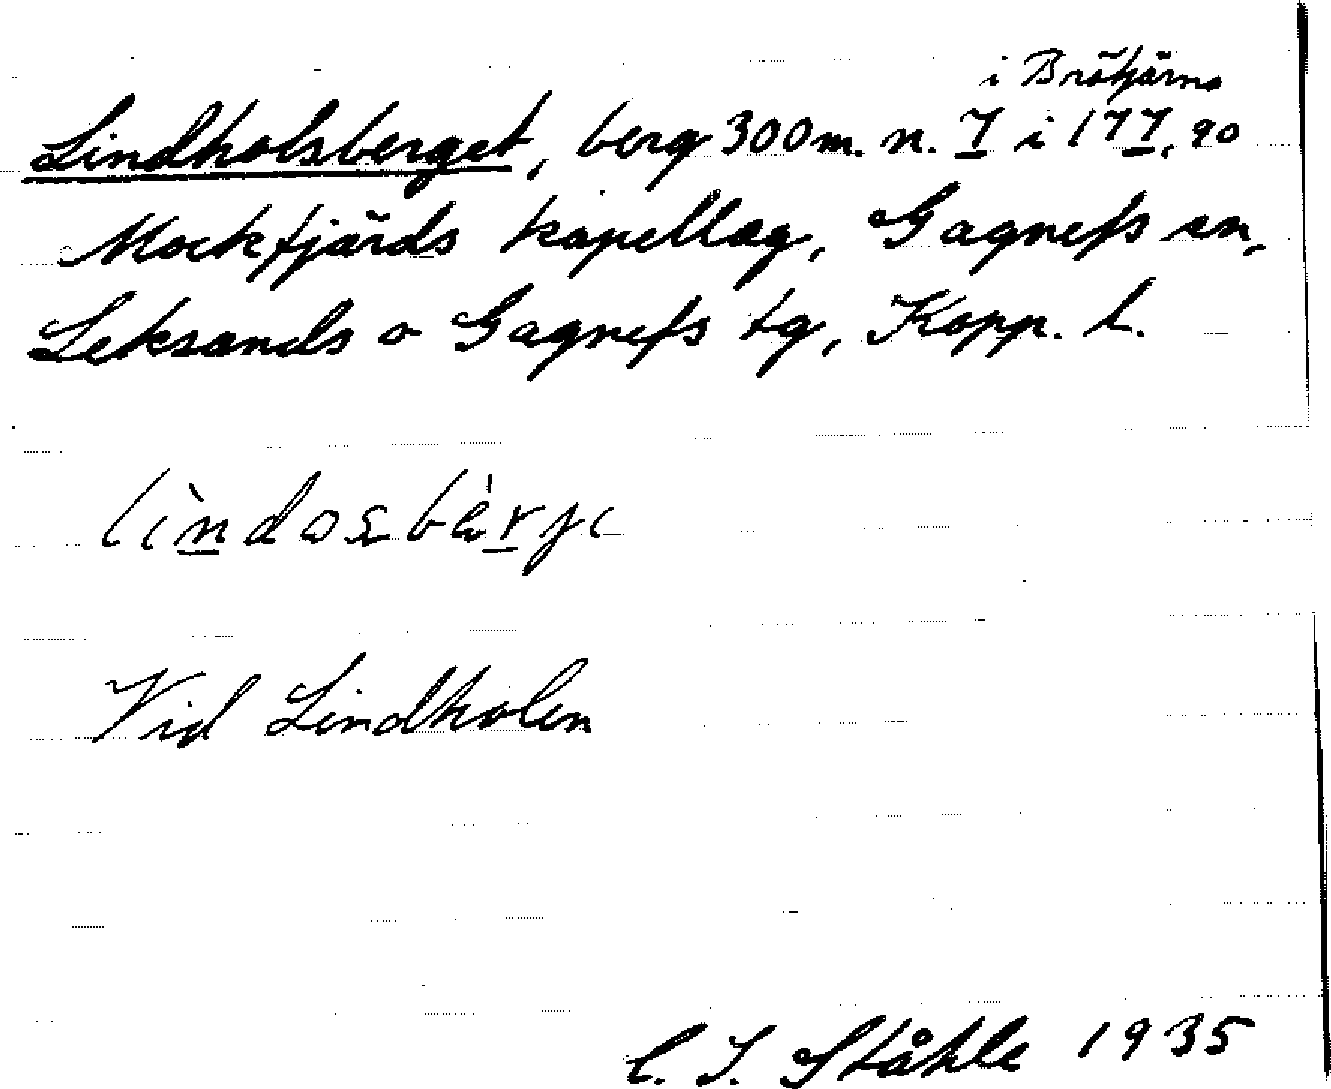 i Bröttjärna
Lindholsberget, berg 300 m. n. 7 i 177, 90
Mockfjärds kapellag, Gagnefs sn,
Leksands o Gagnefs tg, Kopp. l.
Vid Lindholen
C. I. Ståhle 1935